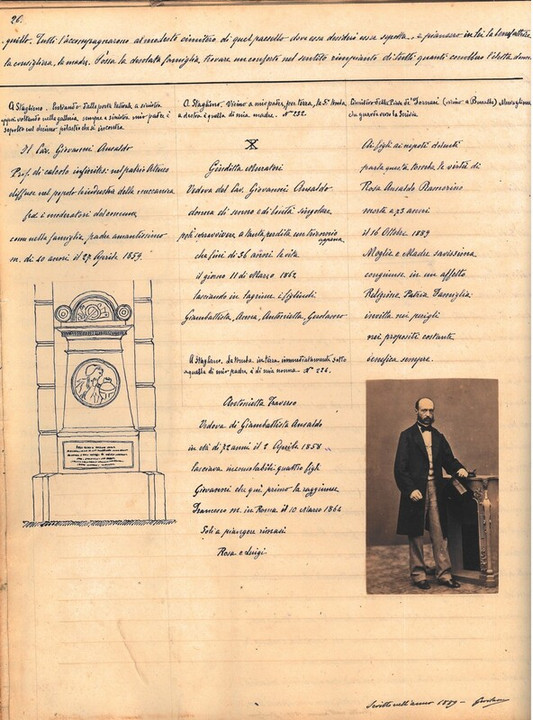 26.
quillo. Tutti l'accompagnarono al modesto cimitero di quel paesello dove essa desiderò esser sepolta e piansero in lei la benefattrice,
la consigliera, la madre. Possa la desolata famiglia trovare un conforto nel sentito rimpianto di tutti quanti conobbero l'eletta donna.
A Staglieno. Entrando dalla porta laterale a sinistra
voltando nella galleria sempre a sinistra mio padre è
sepolto nel decimo pilastro che si incontra
Il Cav. Giovanni Ansaldo
Prof. di calcolo infinites. nel patrio Ateneo
diffuse nel popolo le industrie della meccanica
fu i moderatori del comune
come nella famiglia padre amantissimo
m. di 40 anni il 27 Aprile 1859
A Staglieno. Vicino a mio padre, per terra, la 5ª tomba
a destra è quella di mia madre. Nº 232.
X
Giuditta Muratori
Vedova del Cav. Giovanni Ansaldo
donna di senno e di bontà singolare
poté sopravvivere a tanta perdita un triennio
appena
che finì di 36 anni la vita
il giorno 11 di Marzo 1862
lasciando in lagrime i figliuoli
Giambattista, Anna, Antonietta, Gerolamo
A Staglieno. La tomba in terra immediatamente sotto
a quella di mio padre è di mia nonna. Nº 226.
Antonietta Traverso
Vedova di Giambattista Ansaldo
in età di 72 anni il 2 Aprile 1858
lasciava inconsolabili quattro figli
Giovanni che qui primo la raggiunse
Francesco m. in Roma il 10 Marzo 1864
Soli a piangere rimasti
Rosa e Luigi
Cimitero della Pieve di
che guarda verso la
Ai figli ai nepoti dolenti
parla questa tomba le virtù di
Rosa Ansaldo Ramorino
morta a 73 anni
il 16 Ottbre. 1889
Moglie e Madre savissima
congiunse in un affetto
Religione Patria Famiglia
invitta nei perigli
nei propositi costante
benefica sempre.
Scritto nell'anno 1889 –